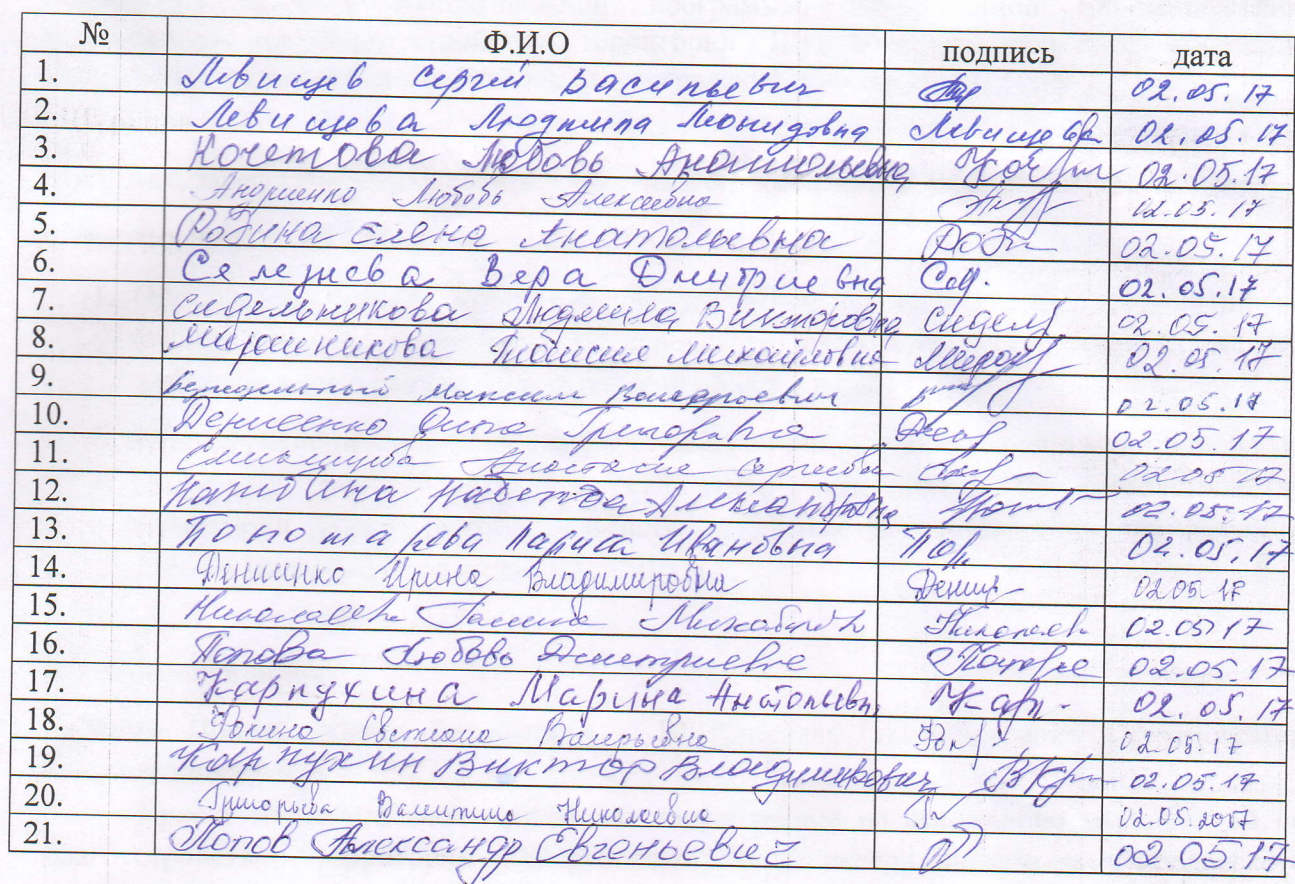 № Ф.И.О подпись дата
1. Левищев Сергей Васильевич 02.05.17
2. Левищева Людмила Леонидовна Левищева 02.05.17
3. Кочетова Любовь Анатольевна 02.05.17
4. Андриенко Любовь Алексеевна 02.05.17
5. Робина Елена Анатольевна 02.05.17
6. Селезнева Вера Дмитриевна 02.05.17
7. Сидельникова Людмила Викторовна 02.05.17
8. Мирошникова Таисия Михайловна 02.05.17
9. Максим 02.05.17
10. Денисенко Григорьевна 02.05.17
11. Анастасия Сергеевна 02.05.17
12. Надежда Александровна 02.05.17
13. Пономарева Лариса Ивановна 02.05.17
14. Денисенко Ирина Владимировна 02.05.17
15. Галина 02.05.17
16. Попова Любовь Дмитриевна 02.05.17
17. Карпухина Марина Анатольевна 02.05.17
18. Светлана Валерьевна 02.05.17
19. Карпухин Виктор Владимирович 02.05.17
20. Григорьева Валентина Николаевна 02.05.2017
21. Попов Александр Евгеньевич 02.05.17